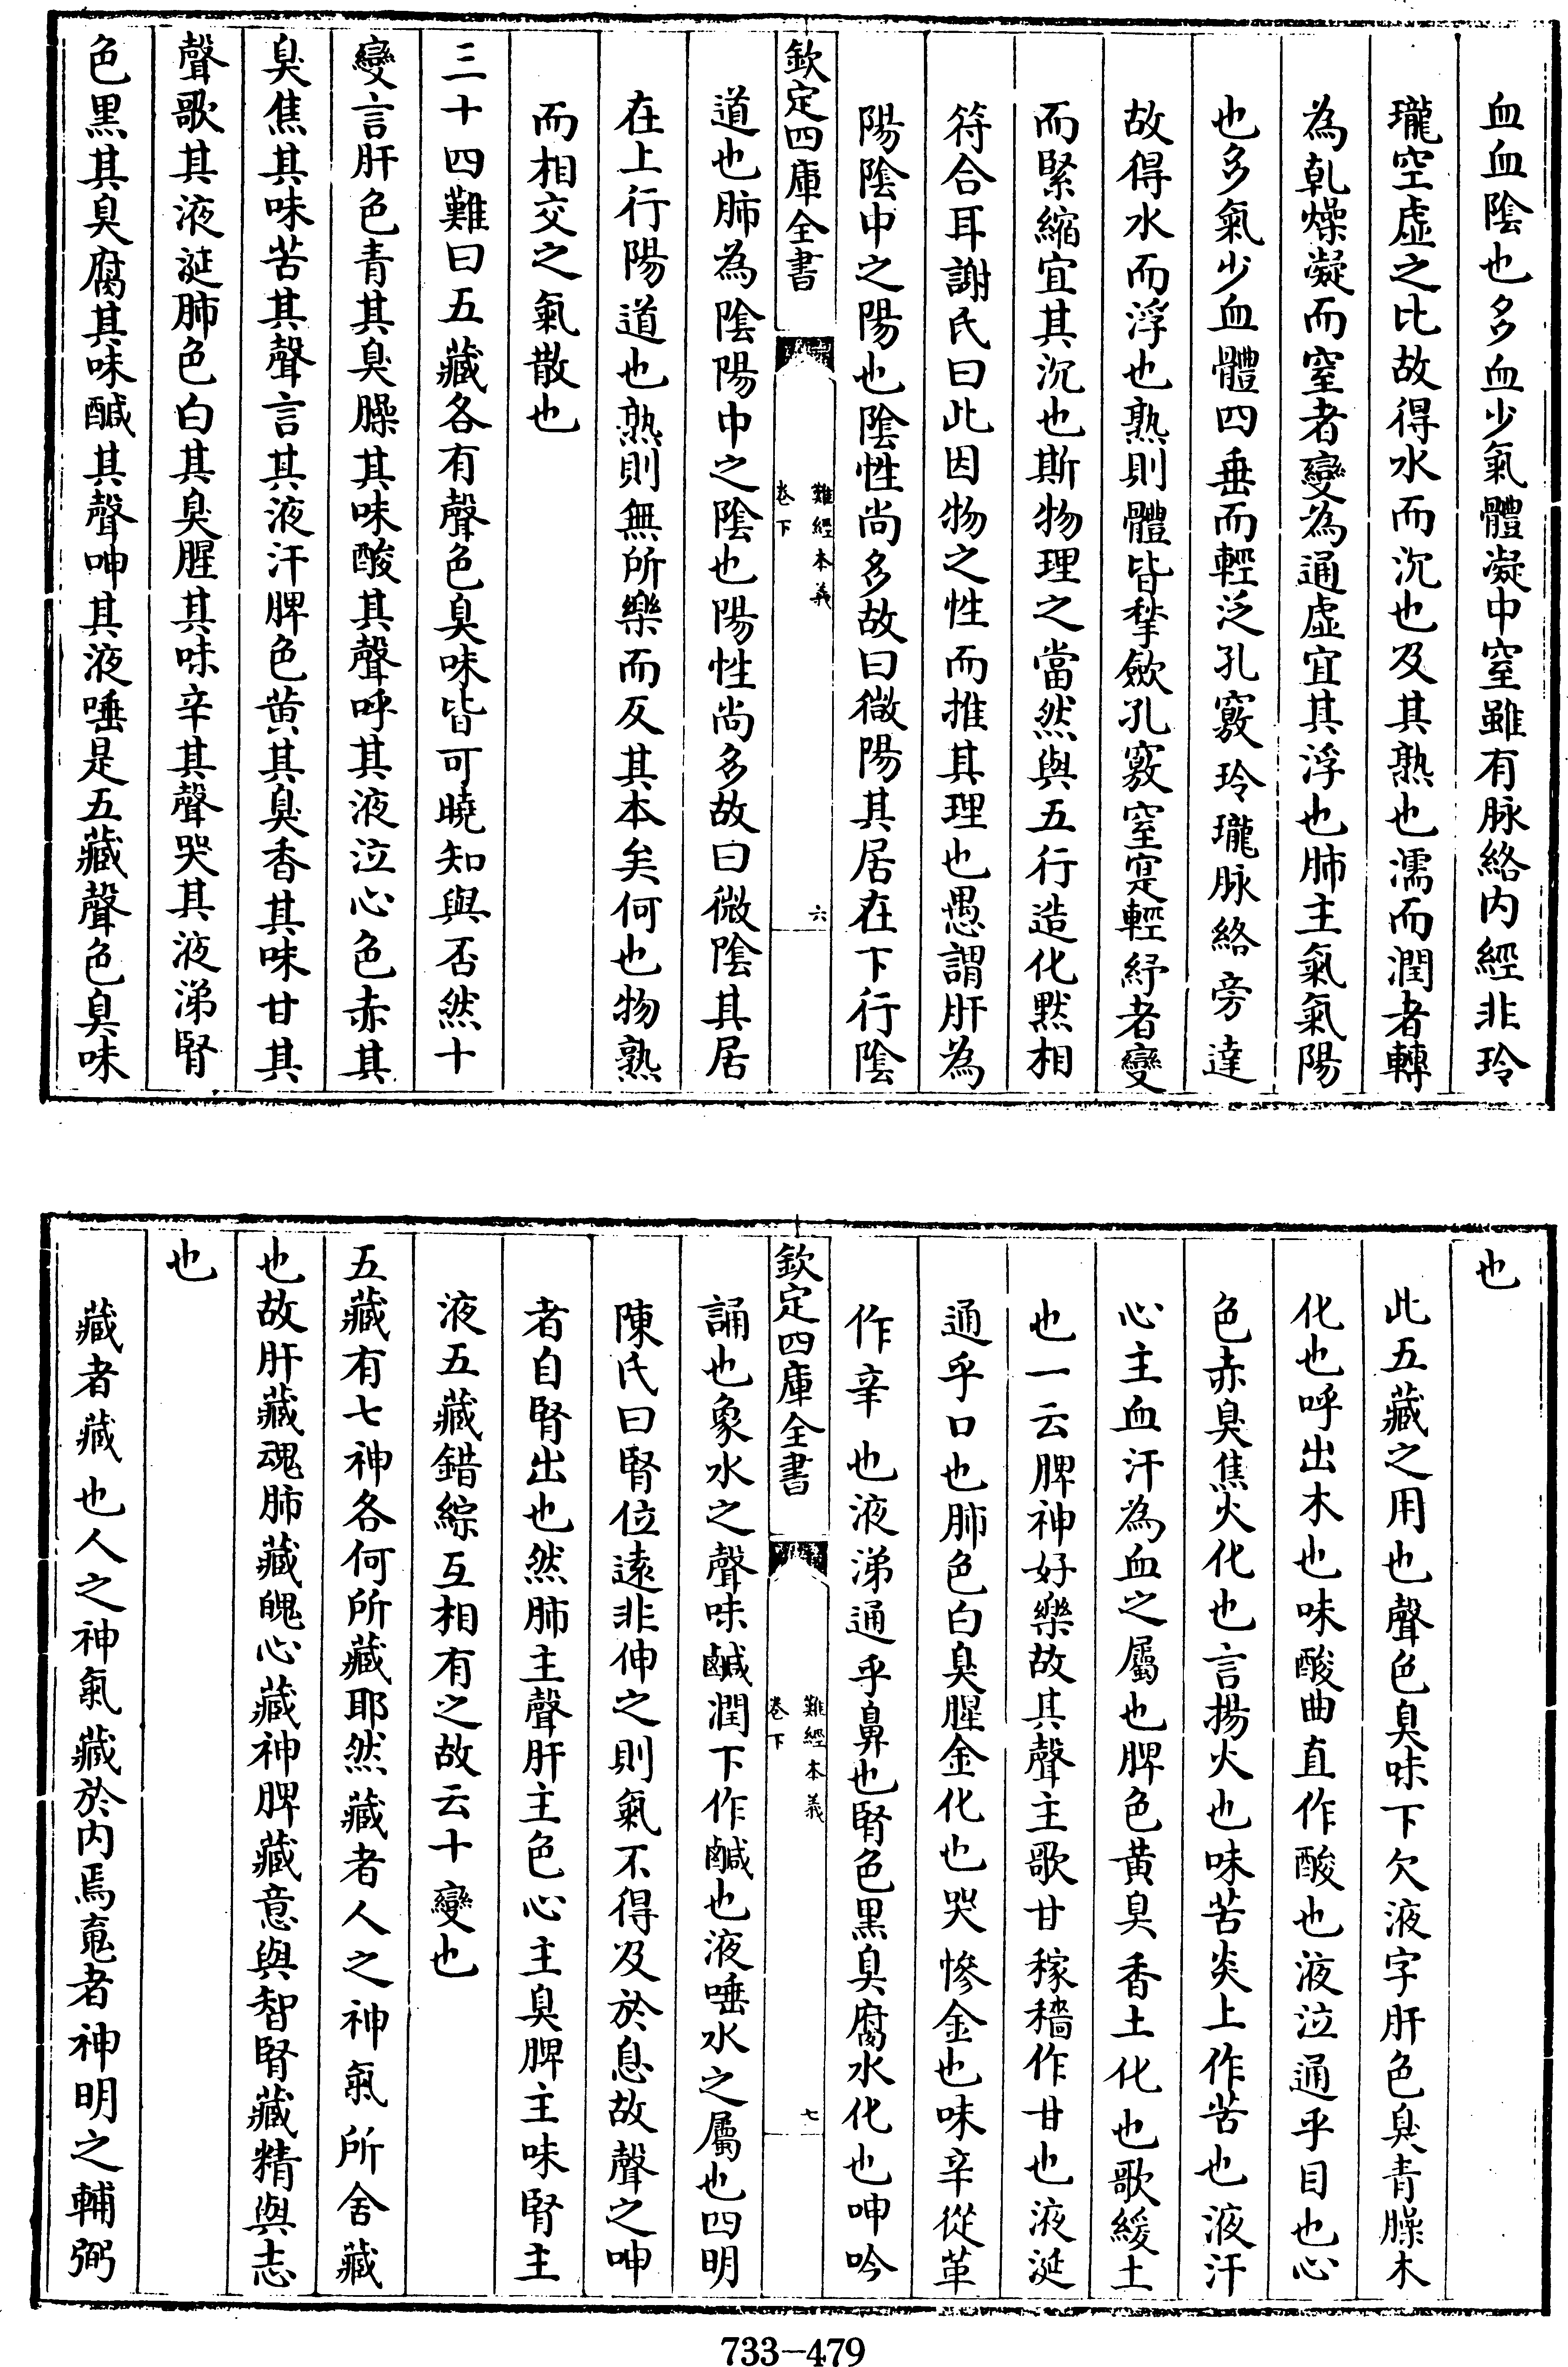 血血陰也多血少氣體凝中窒雖有脉絡内經非玲
瓏空虛之比故得水而沉也及其熟也濡而潤者轉
為乹燥凝而窒者變為通虛宜其浮也肺主氣氣陽
也多氣少血體四垂而輕泛孔竅玲瓏脉絡旁達
故得水而浮也熟則體皆揫歛孔竅窒寔輕紓者變
而緊縮宜其沉也斯物理之當然與五行造化黙相
符合耳謝氏曰此因物之性而推其理也愚謂肝為
陽陰中之陽也陰性尚多故曰微陽其居在下行陰
欽定四庫全書
難經本義
卷下
六
道也肺為陰陽中之陰也陽性尚多故曰微陰其居
在上行陽道也熟則無所樂而反其本矣何也物熟
而相交之氣散也
三十四難曰五藏各有聲色臭味皆可曉知與否然十
變言肝色青其臭臊其味酸其聲呼其液泣心色赤其
臭焦其味苦其聲言其液汗脾色黄其臭香其味甘其
聲歌其液涎肺色白其臭腥其味辛其聲哭其液涕腎
色黑其臭腐其味醎其聲呻其液唾是五藏聲色臭味
也
此五藏之用也聲色臭味下欠液字肝色臭青臊木
化也呼出木也味酸曲直作酸也液泣通乎目也心
色赤臭焦火化也言揚火也味苦炎上作苦也液汗
心主血汗為血之屬也脾色黄臭香土化也歌緩土
也一云脾神好樂故其聲主歌甘稼穡作甘也液涎
通乎口也肺色白臭腥金化也哭慘金也味辛從革
作辛也液涕通乎鼻也腎色黑臭腐水化也呻吟
欽定四庫全書
難經本義
卷下
七
誦也象水之聲味鹹潤下作鹹也液唾水之屬也四明
陳氏曰腎位遠非伸之則氣不得及於息故聲之呻
者自腎出也然肺主聲肝主色心主臭脾主味腎主
液五藏錯綜互相有之故云十變也
五藏有七神各何所藏耶然藏者人之神氣所舍藏
也故肝藏魂肺藏魄心藏神脾藏意與智腎藏精與志
也
藏者藏也人之神氣藏於内焉䰟者神明之輔弼
733-479